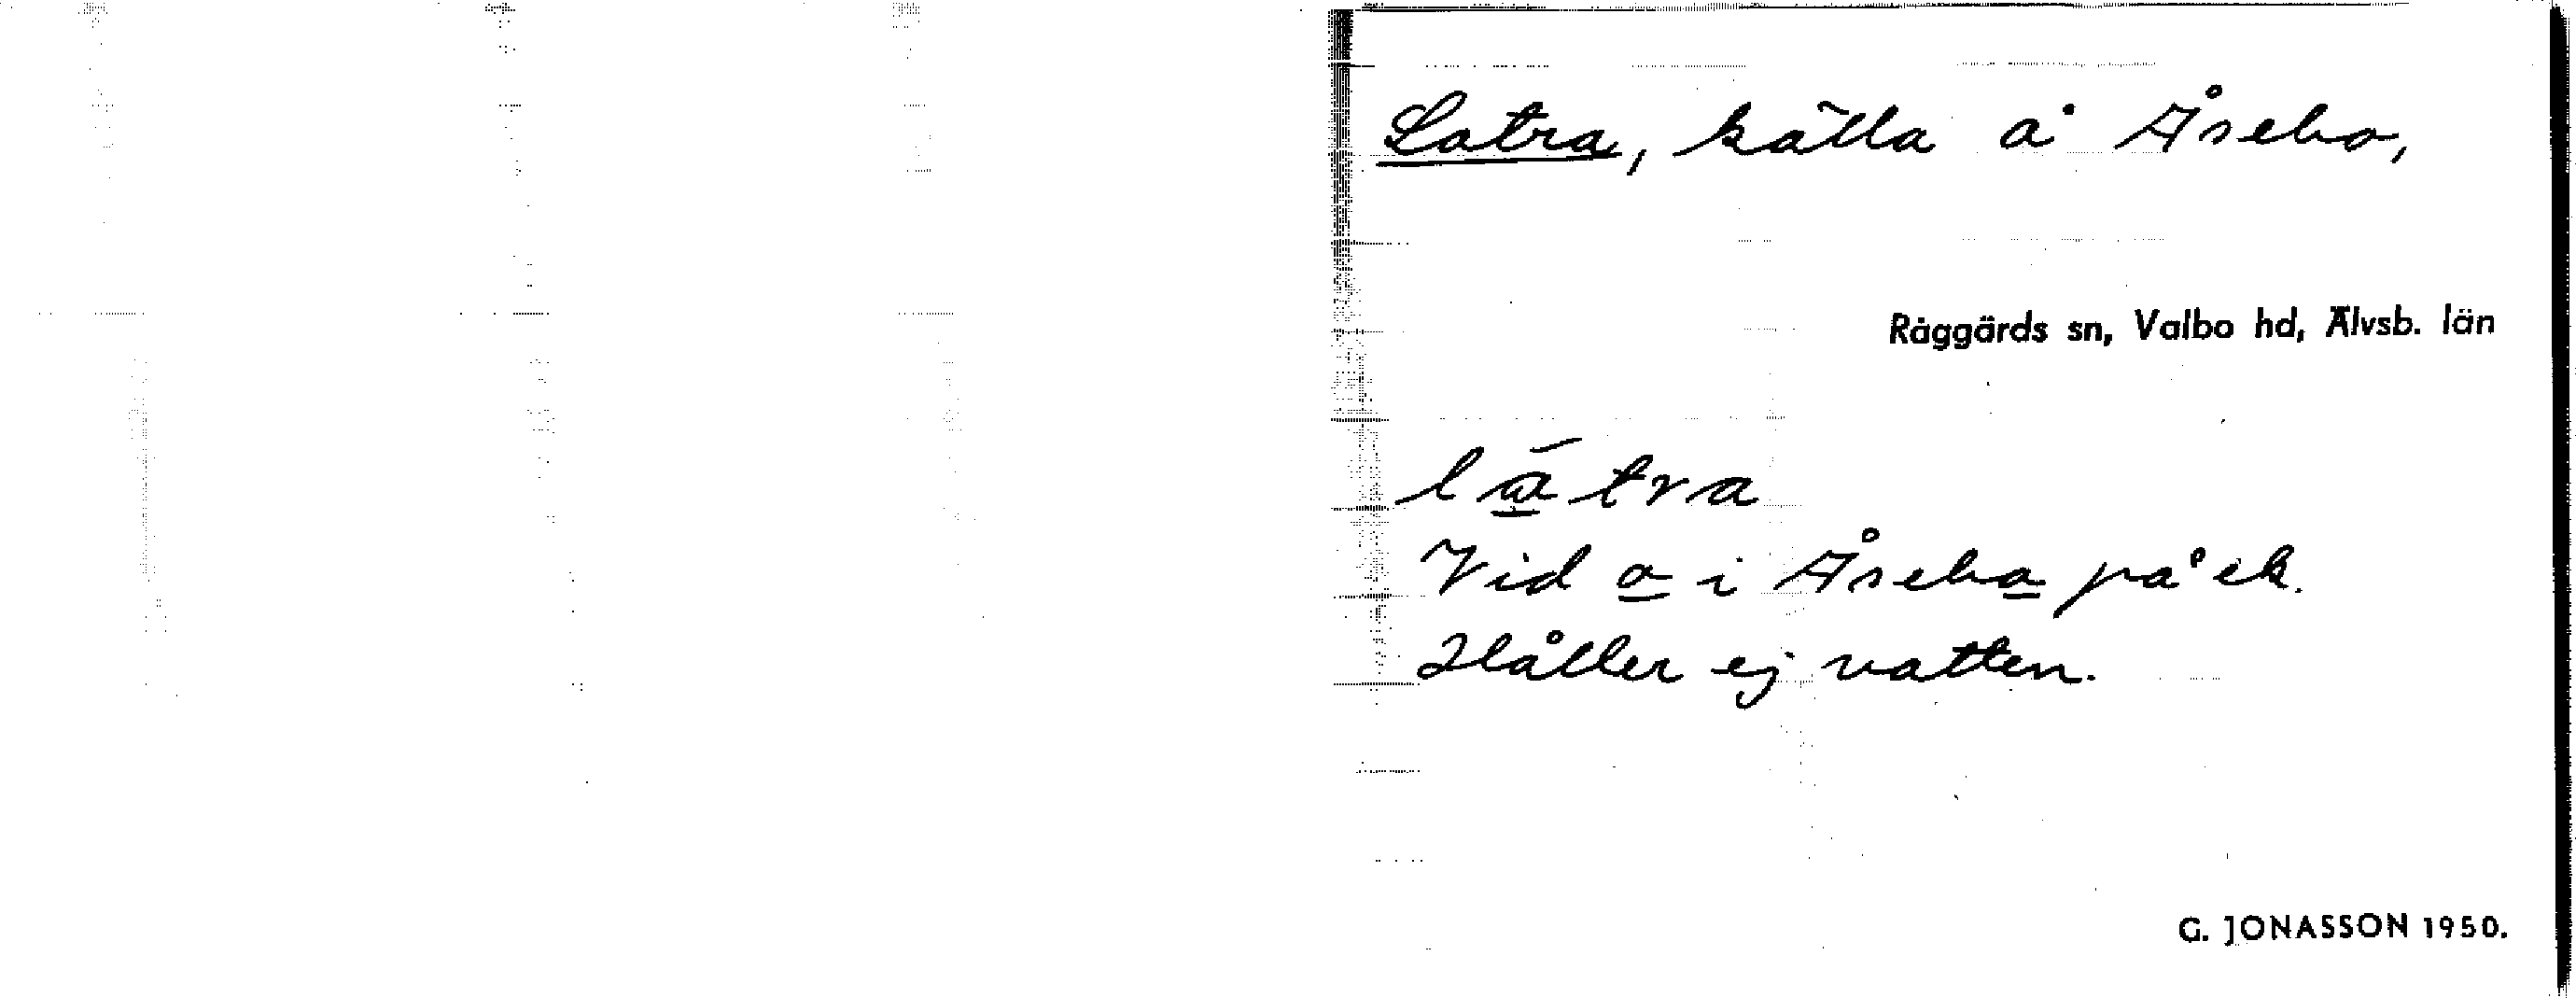 Latra, källa å Åsebo,
Råggärds sn, Valbo hd, Älvsb. län
làtra
Vid o i Åsebo på ek.
Håller ej vatten.
G. JONASSON 1950.